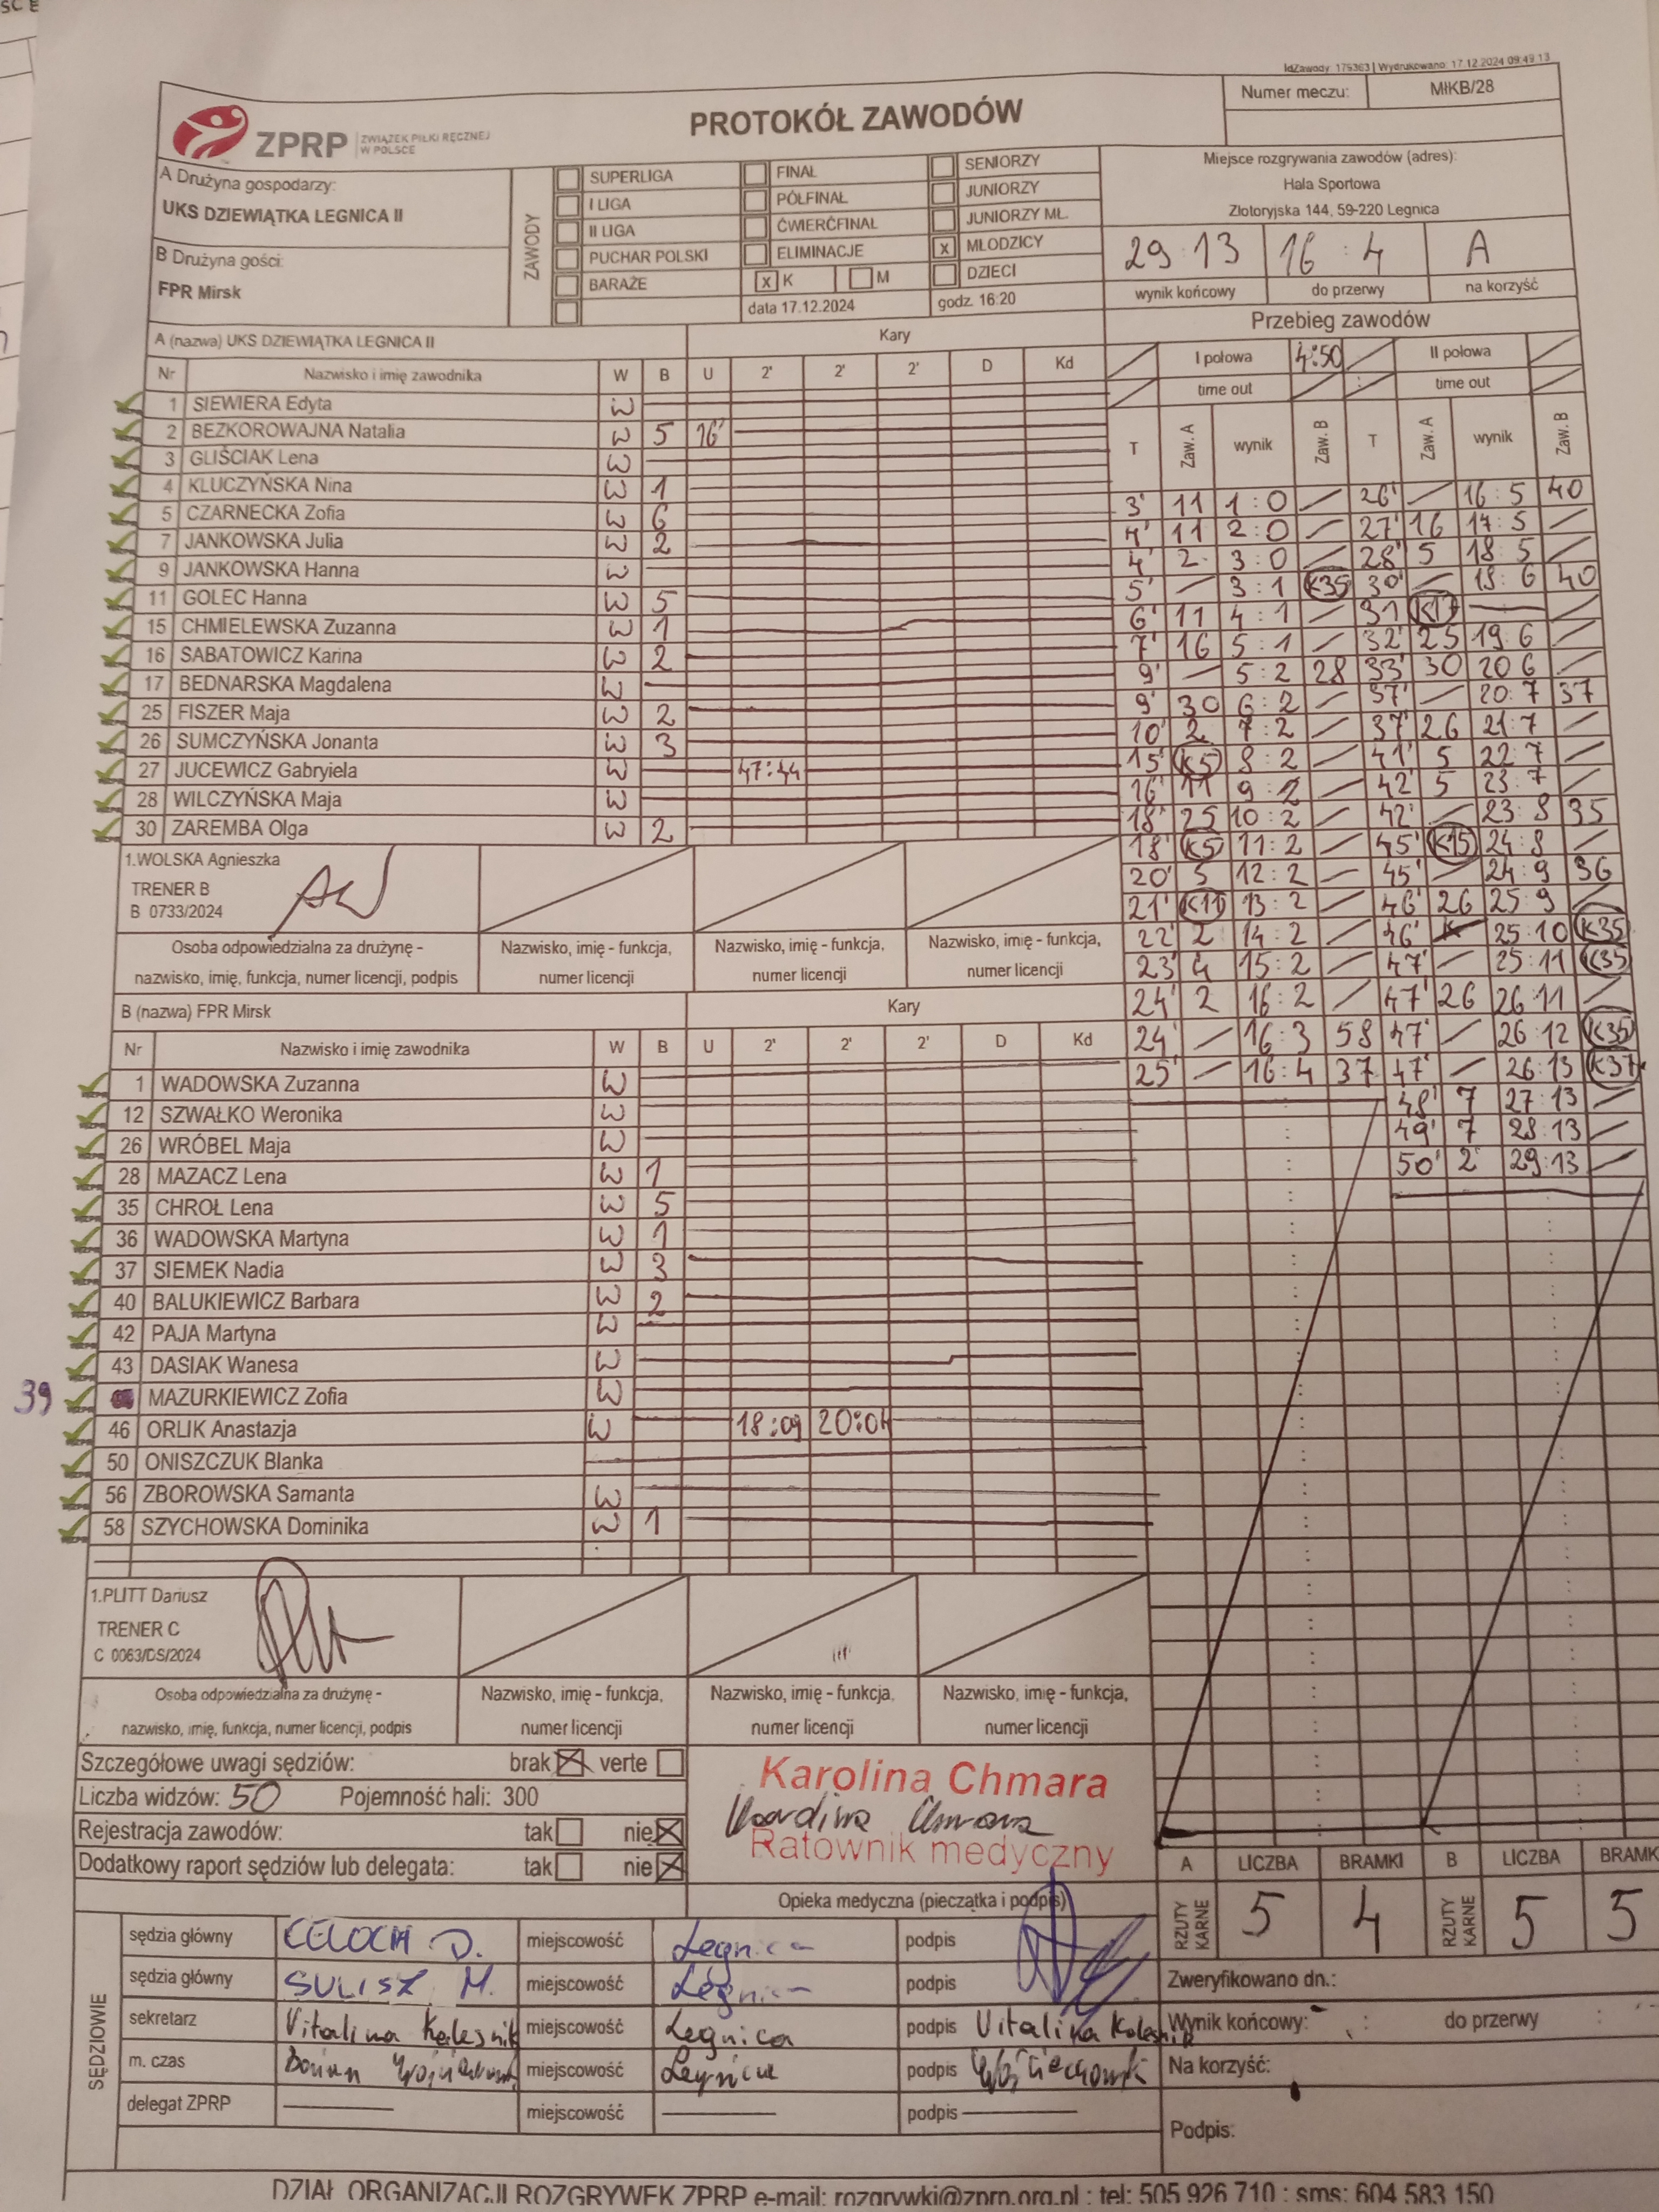 IdZawody: 175363 | Wydrukowano: 17.12.2024 09:49:13
ZPRP ZWIĄZEK PIŁKI RĘCZNEJ W POLSCE
PROTOKÓŁ ZAWODÓW
Numer meczu: MłKB/28
A Drużyna gospodarzy:
UKS DZIEWIĄTKA LEGNICA II
B Drużyna gości:
FPR Mirsk
ZAWODY
SUPERLIGA FINAŁ SENIORZY
I LIGA PÓŁFINAŁ JUNIORZY
II LIGA ĆWIERĆFINAŁ JUNIORZY MŁ.
PUCHAR POLSKI ELIMINACJE x MŁODZICY
BARAŻE x K M DZIECI
data 17.12.2024 godz. 16:20
Miejsce rozgrywania zawodów (adres):
Hala Sportowa
Złotoryjska 144, 59-220 Legnica
29:13 16:4 A
wynik końcowy do przerwy na korzyść
A (nazwa) UKS DZIEWIĄTKA LEGNICA II Kary
Nr Nazwisko i imię zawodnika W B U 2' 2' 2' D Kd
1 SIEWIERA Edyta W
2 BEZKOROWAJNA Natalia W 5 16'
3 GLIŚCIAK Lena W
4 KLUCZYŃSKA Nina W 1
5 CZARNECKA Zofia W 6
7 JANKOWSKA Julia W 2
9 JANKOWSKA Hanna W
11 GOLEC Hanna W 5
15 CHMIELEWSKA Zuzanna W 1
16 SABATOWICZ Karina W 2
17 BEDNARSKA Magdalena W
25 FISZER Maja W 2
26 SUMCZYŃSKA Jonanta W 3
27 JUCEWICZ Gabryiela W 47:44
28 WILCZYŃSKA Maja W
30 ZAREMBA Olga W 2
1.WOLSKA Agnieszka
TRENER B
B 0733/2024
Osoba odpowiedzialna za drużynę - nazwisko, imię, funkcja, numer licencji, podpis
Nazwisko, imię - funkcja, numer licencji
Nazwisko, imię - funkcja, numer licencji
Nazwisko, imię - funkcja, numer licencji
B (nazwa) FPR Mirsk Kary
Nr Nazwisko i imię zawodnika W B U 2' 2' 2' D Kd
1 WADOWSKA Zuzanna W
12 SZWAŁKO Weronika W
26 WRÓBEL Maja W
28 MAZACZ Lena W 1
35 CHROŁ Lena W 5
36 WADOWSKA Martyna W 1
37 SIEMEK Nadia W 3
40 BALUKIEWICZ Barbara W 2
42 PAJA Martyna W
43 DASIAK Wanesa W
39 MAZURKIEWICZ Zofia W
46 ORLIK Anastazja W 18:09 20:04
50 ONISZCZUK Blanka
56 ZBOROWSKA Samanta W
58 SZYCHOWSKA Dominika W 1
1.PLITT Dariusz
TRENER C
C 0063/DS/2024
Osoba odpowiedzialna za drużynę - nazwisko, imię, funkcja, numer licencji, podpis
Nazwisko, imię - funkcja, numer licencji
Nazwisko, imię - funkcja, numer licencji
Nazwisko, imię - funkcja, numer licencji
Przebieg zawodów
I połowa 4:50 II połowa
time out : time out
T Zaw. A wynik Zaw. B T Zaw. A wynik Zaw. B
3' 11 1:0 / 26' / 16:5 40
4' 11 2:0 / 27' 16 17:5 /
4' 2 3:0 / 28' 5 18:5 /
5' / 3:1 K35 30' / 18:6 40
6' 11 4:1 / 31 K17 — /
7' 16 5:1 / 32' 25 19:6 /
9' / 5:2 28 33' 30 20 6 /
9' 30 6:2 / 37' / 20:7 37
10' 2 7:2 / 37' 26 21:7 /
15' K5 8:2 / 41' 5 22:7 /
16' 11 9:2 / 42' 5 23:7 /
18' 25 10:2 / 42' / 23:8 35
18' K5 11:2 / 45' K15 24:8 /
20' 5 12:2 / 45' / 24:9 36
21' K11 13:2 / 46' 26 25:9 /
22' 2 14:2 / 46' 25:10 K35
23' 4 15:2 / 47' / 25:11 K35
24' 2 16:2 / 47' 26 26:11 /
24' / 16:3 58 47' / 26:12 K35
25' / 16:4 37 47' / 26:13 K37
48' 7 27:13 /
49' 7 28:13 /
50' 2 29:13 /
Szczegółowe uwagi sędziów: brak x verte
Liczba widzów: 50 Pojemność hali: 300
Rejestracja zawodów: tak nie x
Dodatkowy raport sędziów lub delegata: tak nie x
Karolina Chmara
Karolina Chmara
Ratownik medyczny
Opieka medyczna (pieczątka i podpis)
A LICZBA BRAMKI B LICZBA BRAMK
RZUTY KARNE 5 4 RZUTY KARNE 5 5
SĘDZIOWIE
sędzia główny CELOCH D. miejscowość Legnica podpis
sędzia główny SULISZ M. miejscowość Legnica podpis
sekretarz Vitalina Kolesnik miejscowość Legnica podpis Vitalina Kolesnik
m. czas miejscowość Legnica podpis Wojciechowski
delegat ZPRP miejscowość podpis
Zweryfikowano dn.:
Wynik końcowy: : do przerwy :
Na korzyść:
Podpis:
DZIAŁ ORGANIZACJI ROZGRYWEK ZPRP e-mail: rozgrywki@zprp.org.pl ; tel: 505 926 710 ; sms: 604 583 150